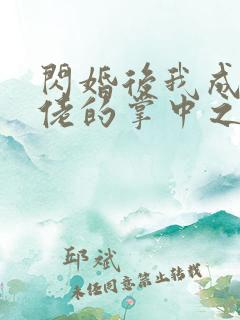 閃婚後我成
佬的掌中之
邱斌
未經同意禁止轉載